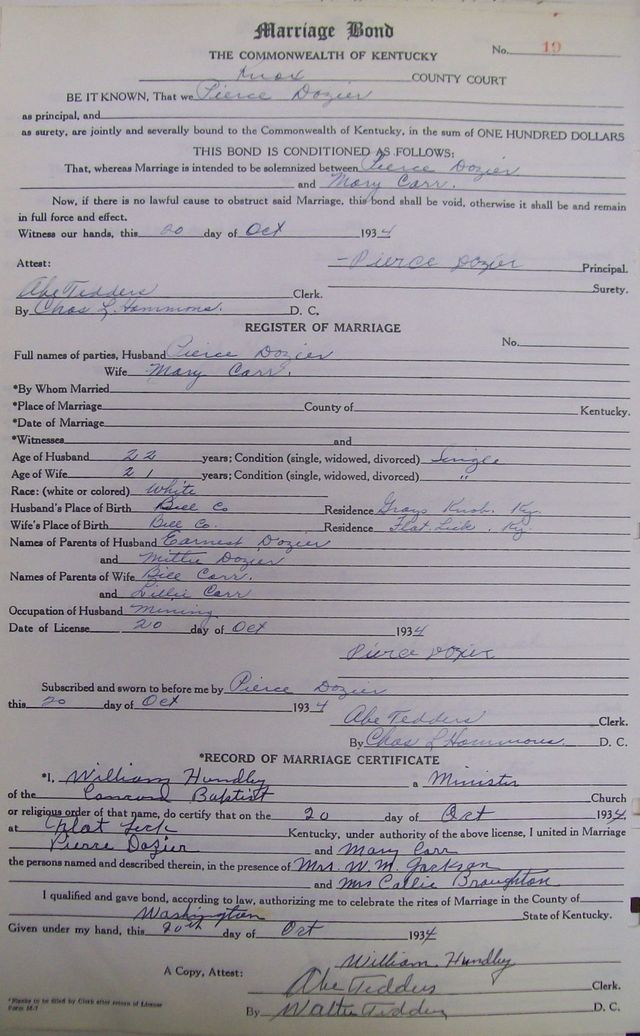 Marriage Bond
THE COMMONWEALTH OF KENTUCKY No. 19
Knox COUNTY COURT
BE IT KNOWN, That we Pierce Dozier
as principal, and
as surety, are jointly and severally bound to the Commonwealth of Kentucky, in the sum of ONE HUNDRED DOLLARS
THIS BOND IS CONDITIONED AS FOLLOWS:
That, whereas Marriage is intended to be solemnized between Pierce Dozier
and Mary Carr.
Now, if there is no lawful cause to obstruct said Marriage, this bond shall be void, otherwise it shall be and remain
in full force and effect.
Witness our hands, this 20 day of Oct 1934
Attest: Pierce Dozier Principal.
Abe Tedders Clerk. Surety.
By Chas L. Hammons. D. C.
REGISTER OF MARRIAGE
No.
Full names of parties, Husband Pierce Dozier
Wife Mary Carr.
*By Whom Married
*Place of Marriage County of Kentucky.
*Date of Marriage
*Witnesses and
Age of Husband 22 years; Condition (single, widowed, divorced) Single
Age of Wife 21 years; Condition (single, widowed, divorced) "
Race: (white or colored) White
Husband's Place of Birth Bell Co Residence Grays Knob. Ky.
Wife's Place of Birth Bell Co. Residence Flat Lick. Ky.
Names of Parents of Husband Earnest Dozier
and Mittie Dozier
Names of Parents of Wife Bill Carr.
and Lillie Carr
Occupation of Husband Mining
Date of License 20 day of Oct 1934
Pierce Dozier
Subscribed and sworn to before me by Pierce Dozier
this 20 day of Oct 1934
Abe Tedders Clerk.
By Chas L Hammons. D. C.
*RECORD OF MARRIAGE CERTIFICATE
*I, William Hundley a Minister
of the Concord Baptist Church
or religious order of that name, do certify that on the 20 day of Oct 1934.
at Flat Lick Kentucky, under authority of the above license, I united in Marriage
Pierre Dozier and Mary Carr
the persons named and described therein, in the presence of Mrs. W. M. Jackson
and Mrs Callie Broughton
I qualified and gave bond, according to law, authorizing me to celebrate the rites of Marriage in the County of
Washington State of Kentucky.
Given under my hand, this 20th day of Oct 1934
William Hundley
A Copy, Attest: Abe Tedders Clerk.
By Walter Tedders D. C.
*Blanks to be filled by Clerk after return of License